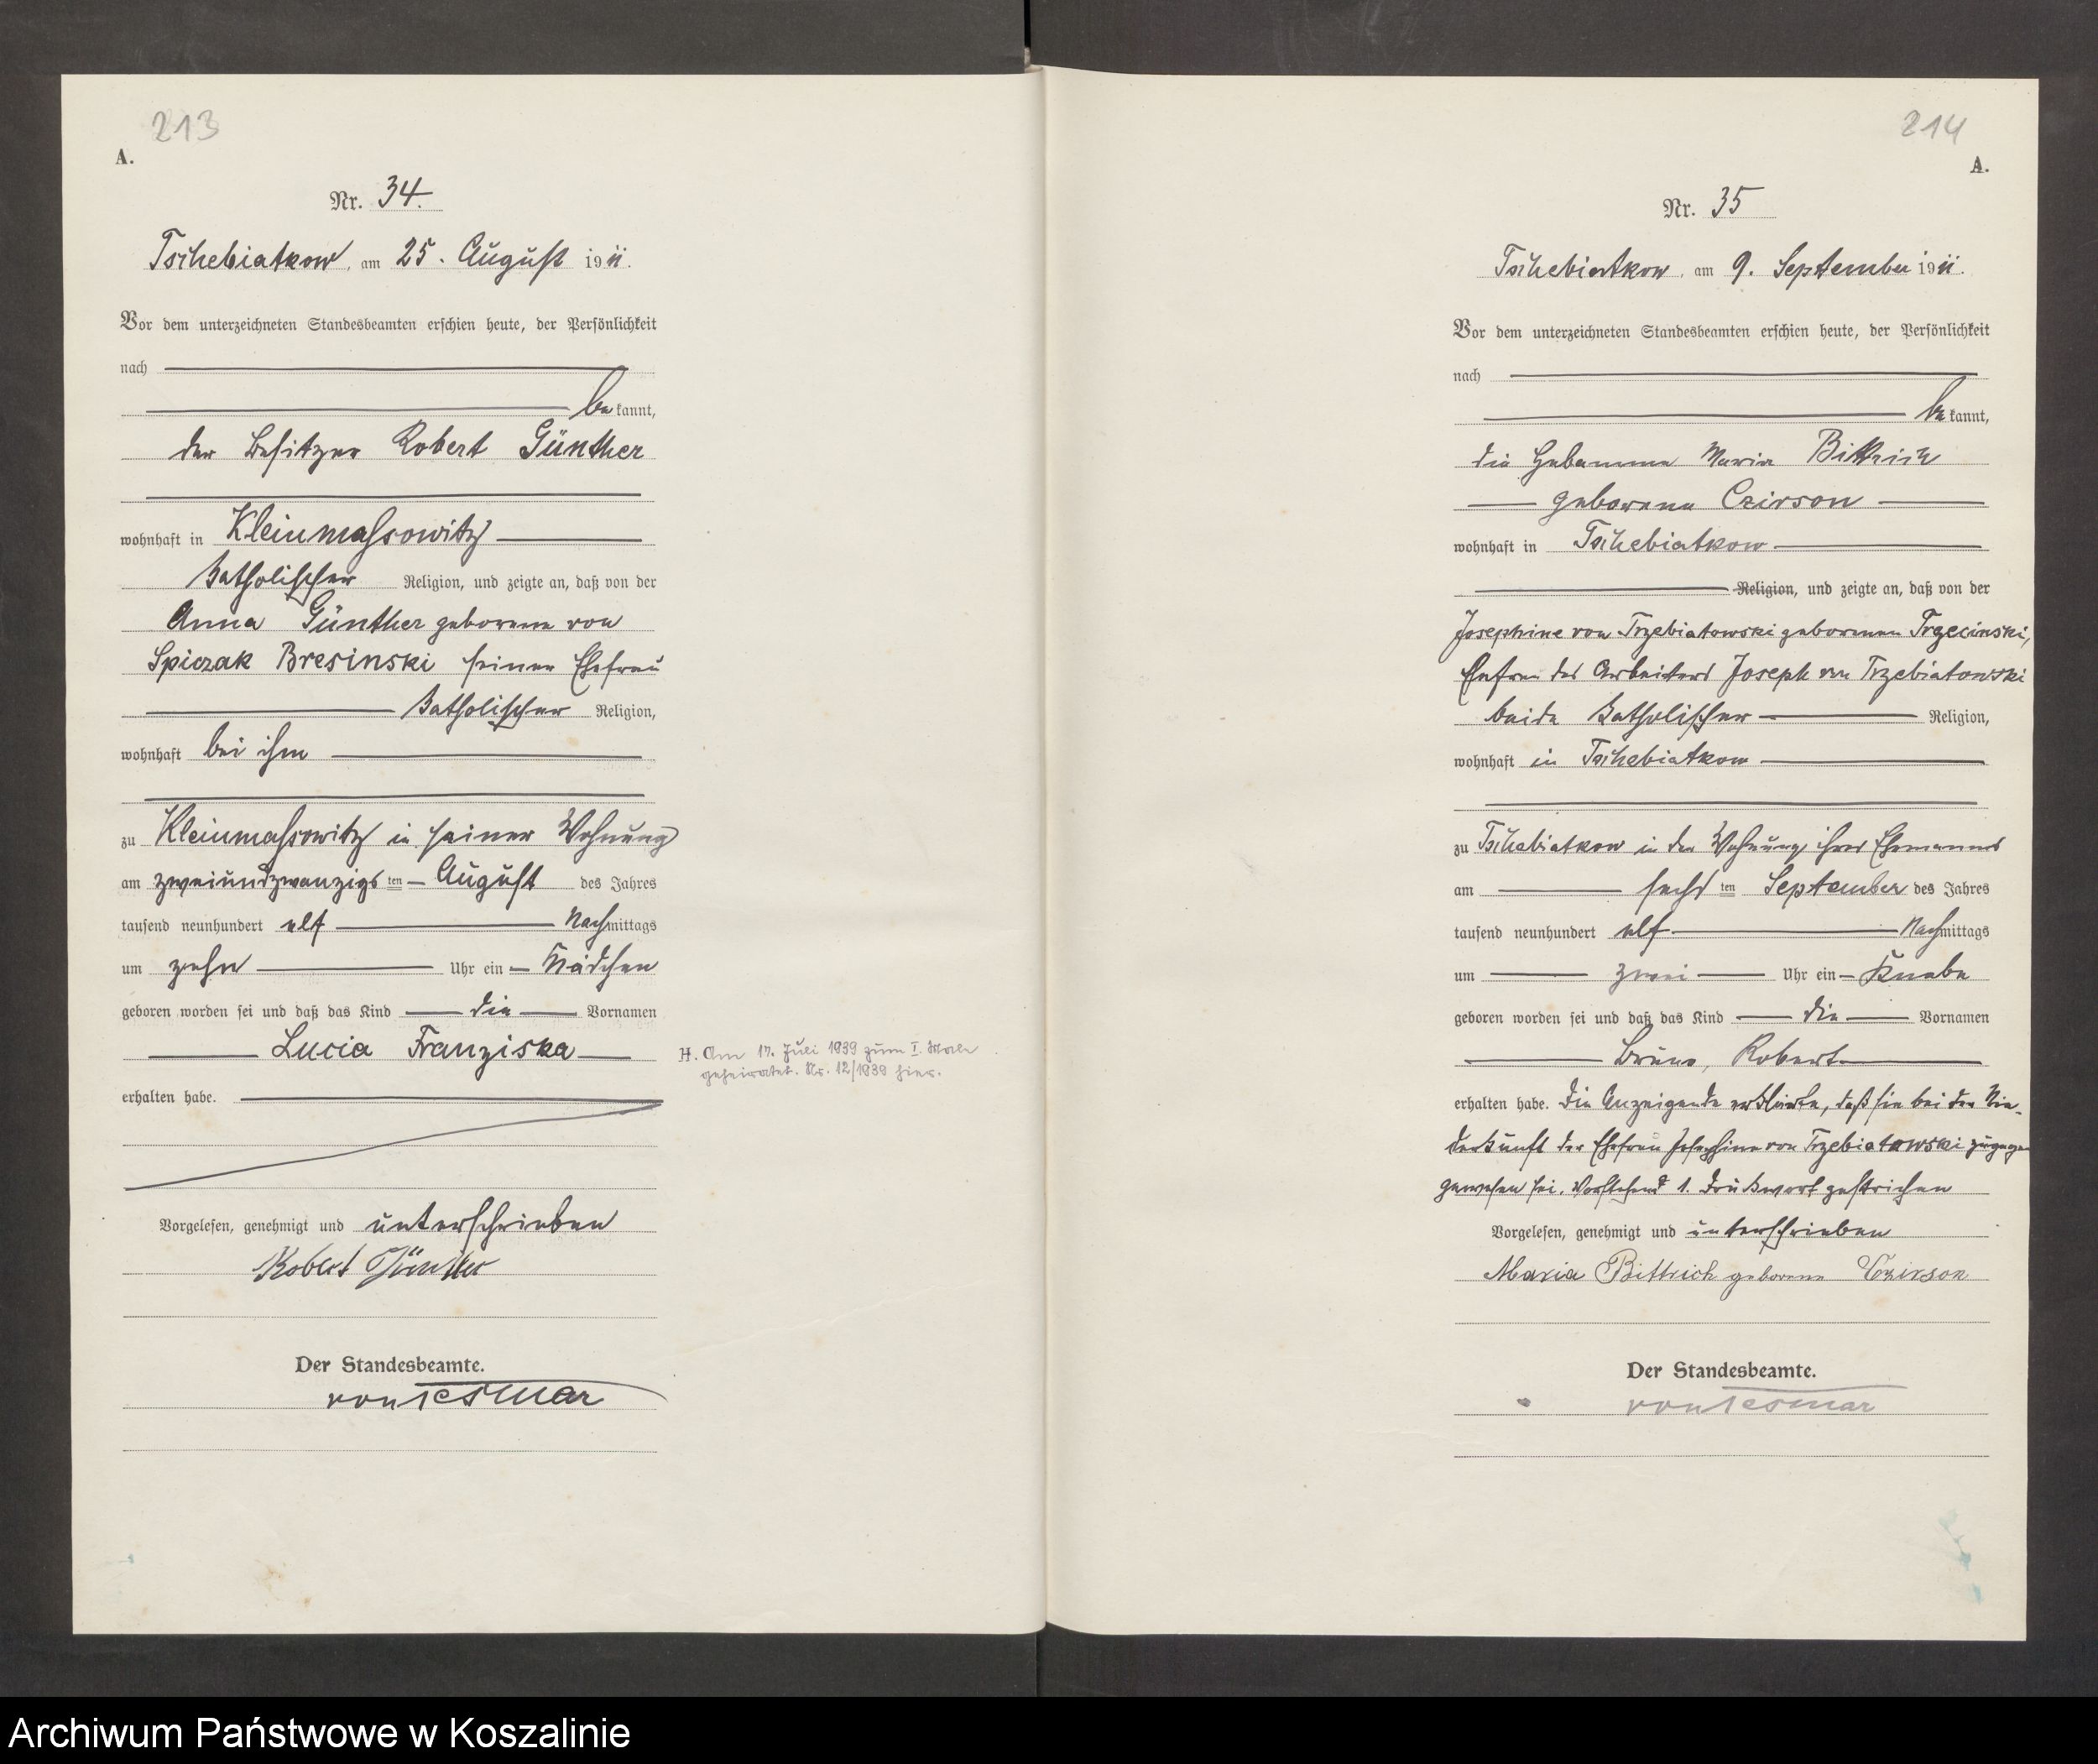 213
A.
Nr. 34.
Tschebiatkow, am 25. August 1911.
Vor dem unterzeichneten Standesbeamten erschien heute, der Persönlichkeit
nach
bekannt,
der Besitzer Robert Günther
wohnhaft in Kleinmassowitz
katholischer Religion, und zeigte an, daß von der
Anna Günther geborene von
Spiczak Bresinski seiner Ehefrau
katholischer Religion,
wohnhaft bei ihm
zu Kleinmassowitz in seiner Wohnung
am zweiundzwanzigsten August des Jahres
tausend neunhundert elf Nachmittags
um zehn Uhr ein Mädchen
geboren worden sei und daß das Kind die Vornamen
Lucia Franziska
erhalten habe.
H. Am 17. Juli 1939 zum I. Male
geheiratet. Nr. 12/1939 hier.
Vorgelesen, genehmigt und unterschrieben
Robert Günther
Der Standesbeamte.
von Tesmar
214
A.
Nr. 35
Tschebiatkow, am 9. September 1911.
Vor dem unterzeichneten Standesbeamten erschien heute, der Persönlichkeit
nach
bekannt,
die Hebamme Maria Bittrich
geborene Czirson
wohnhaft in Tschebiatkow
Religion, und zeigte an, daß von der
Josephine von Trzebiatowski geborenen Trzecinski,
Ehefrau des Arbeiters Joseph von Trzebiatowski
beide katholischer Religion,
wohnhaft in Tschebiatkow
zu Tschebiatkow in der Wohnung ihres Ehemannes
am sechsten September des Jahres
tausend neunhundert elf Nachmittags
um zwei Uhr ein Knabe
geboren worden sei und daß das Kind die Vornamen
Bruno, Robert
erhalten habe. Die Anzeigende erklärte, daß sie bei der Nie-
derkunft der Ehefrau Josephine von Trzebiatowski zugegen
gewesen sei. Vorstehend 1. Druckwort gestrichen
Vorgelesen, genehmigt und unterschrieben
Maria Bittrich geborene Czirson
Der Standesbeamte.
von Tesmar
Archiwum Państwowe w Koszalinie